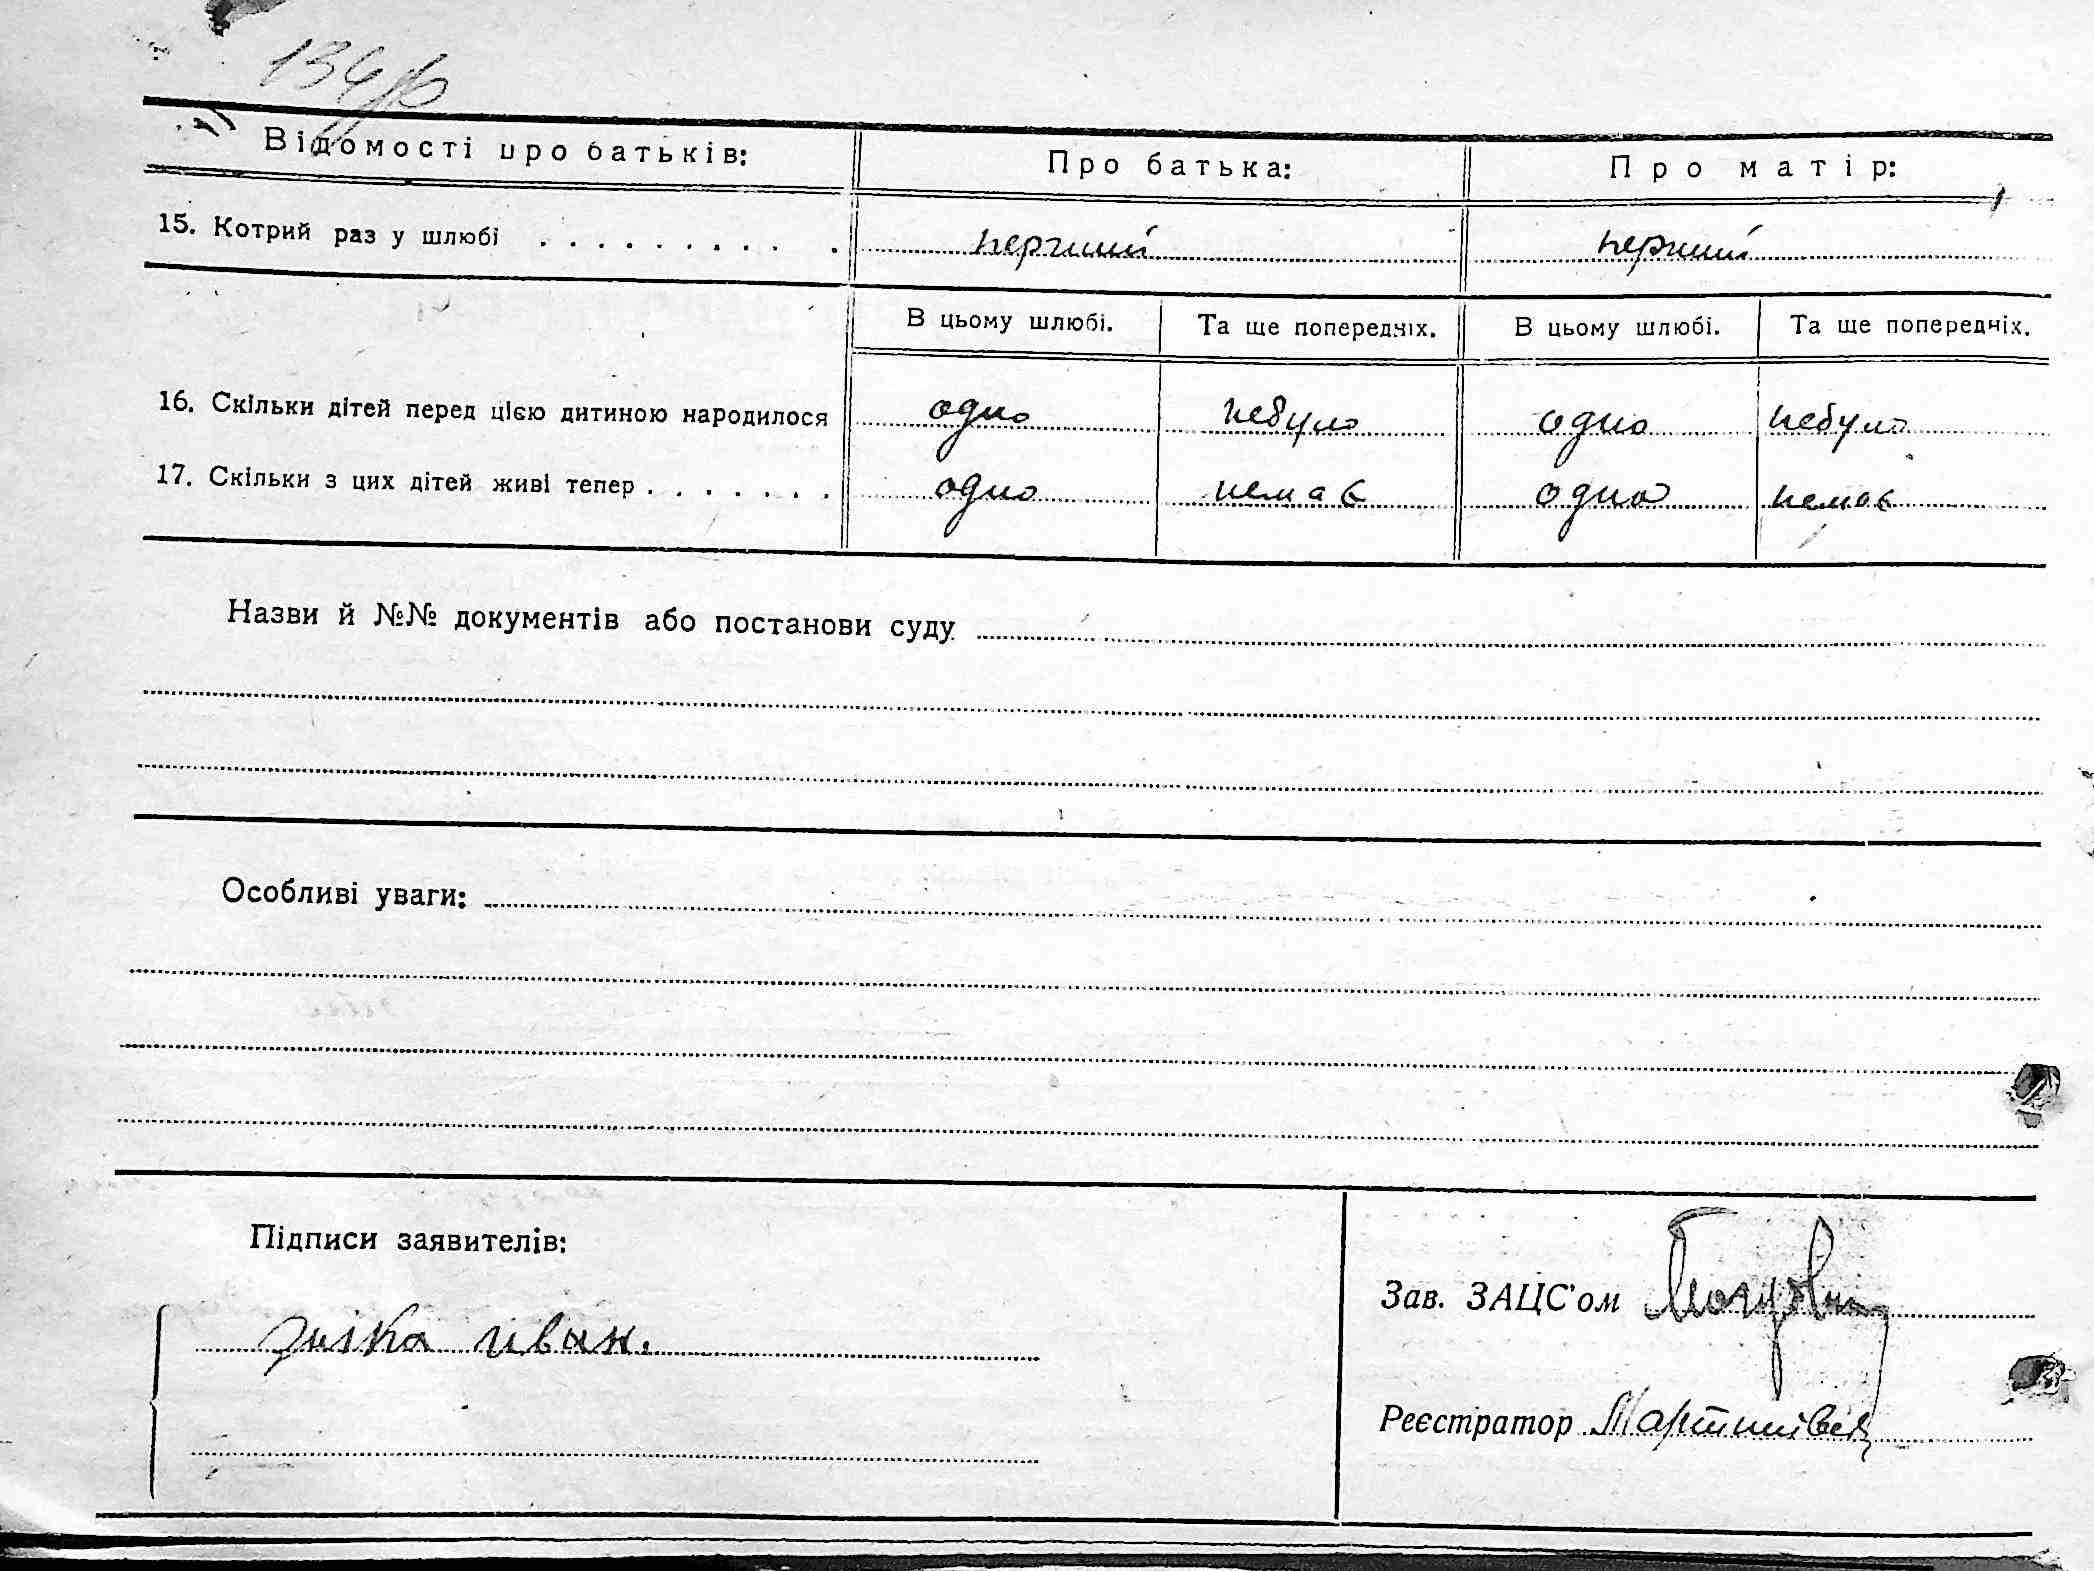 Відомості про батьків: Про батька: Про матір:
15. Котрий раз у шлюбі . . . . . . . . . . перший перший
В цьому шлюбі. Та ще попередніх. В цьому шлюбі. Та ще попередніх.
16. Скільки дітей перед цією дитиною народилося одно небуло одно небуло
17. Скільки з цих дітей живі тепер . . . . . . . одно немає одно немає
Назви й №№ документів або постанови суду
Особливі уваги:
Підписи заявителів:
Зав. ЗАЦС'ом
иван.
Реєстратор